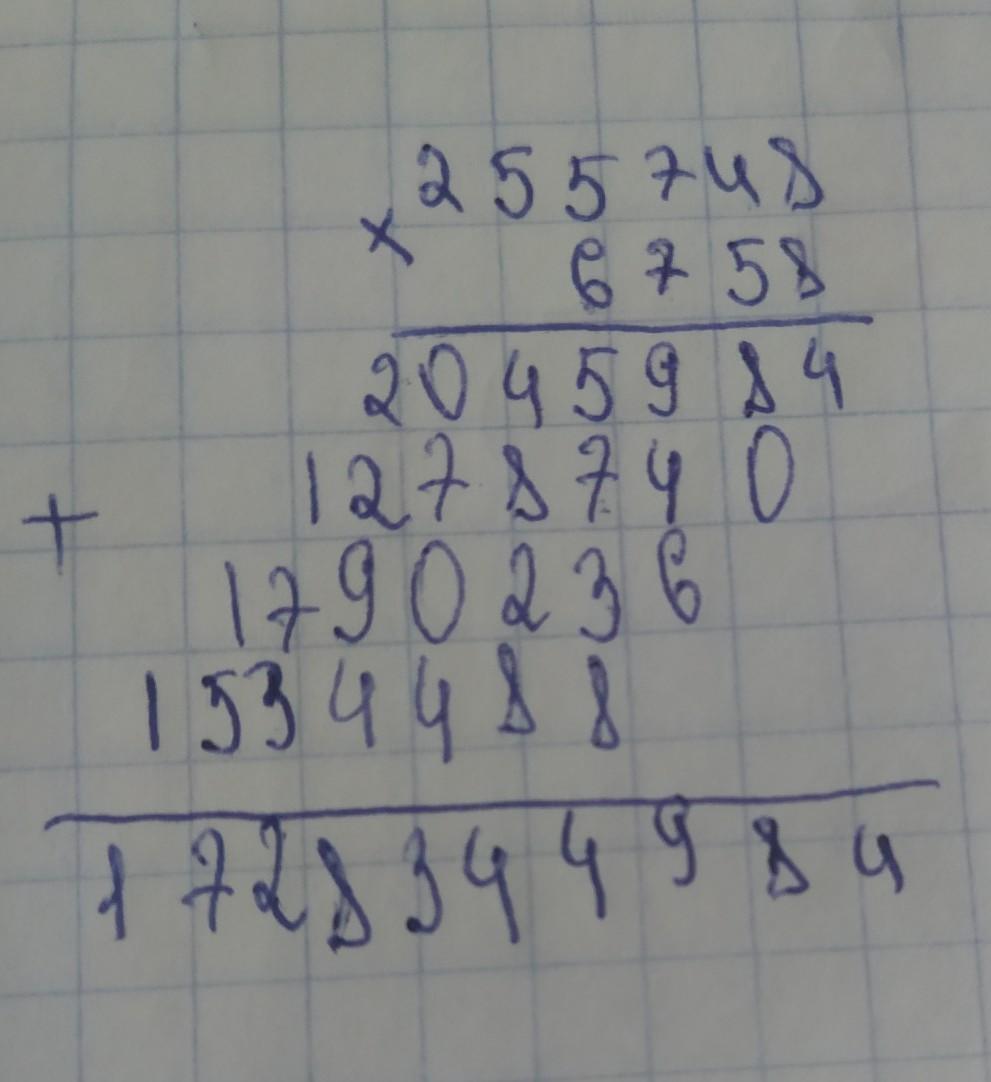 255748
×
6758
2045984
1278740
+
1790236
1534488
1728344984